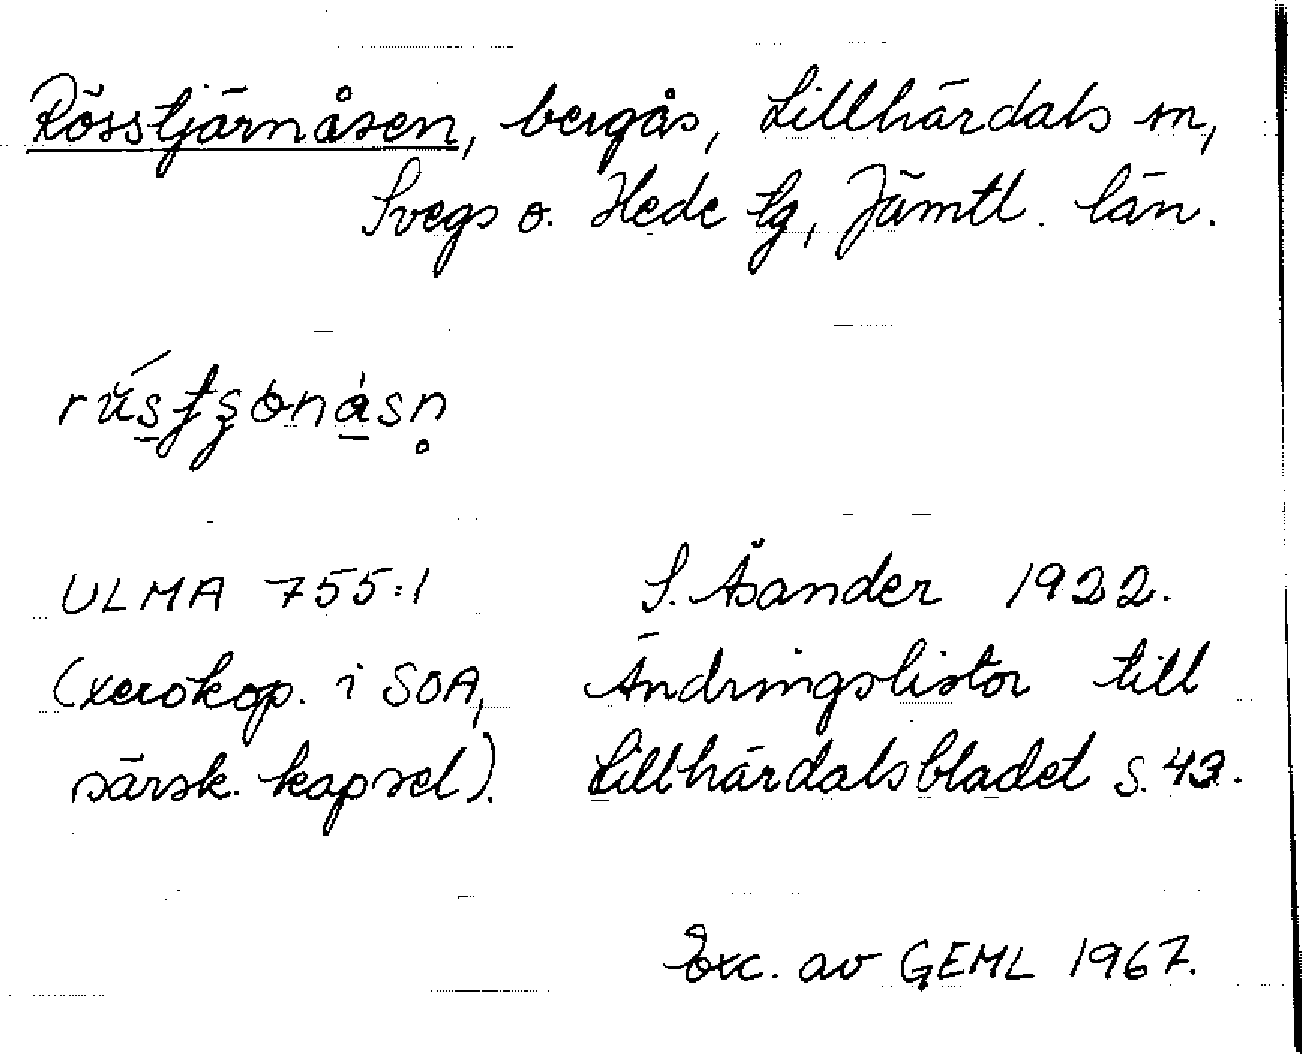 Rösstjärnåsen, bergås, Lillhärdals sn,
Svegs o. Hede tg, Jämtl. län.
ULMA 755:1
S. Åsander 1922.
(xerokop. i SOA,
Ändringslistor till
särsk. kapsel).
Lillhärdalsbladet s. 43.
Exc. av GEML 1967.